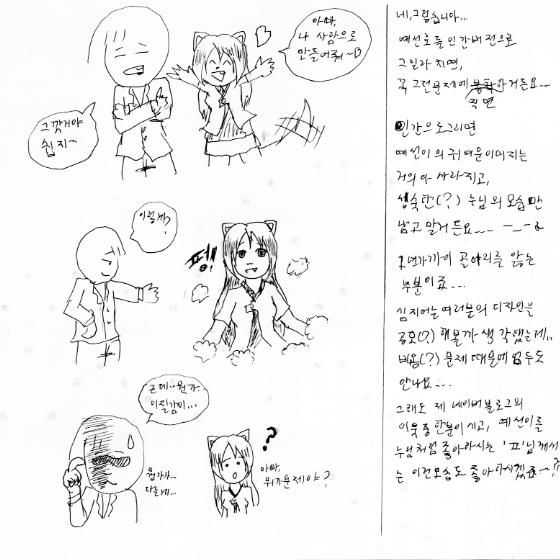 아빠,
나 사람으로
만들어줘~
그깟거야
쉽지~
이렇게?
펑!
근데.. 뭔가
이질감이...
뭔가가..
다른데...
아빠,
뭐가문제야?
?
네, 그렇습니다...
예선호를 인간버전으로
그린다 치면,
꼭 그런문제에 직면하거든요...
인간으로 그리면
예선이의 귀여운이미지는
거의 다 사라지고,
성숙한(?) 누님의 모습만
남고 말거든요... ㅡ_ㅡ;;
몇년가까이 골머리를 앓는
부분이죠...
심지어는 여러분의 디자인을
공모(?)해볼까 생각했는데..
비용(?)문제 때문에 엄두도
안나요...
그래도 제 네이버블로그의
이웃중 한분이시고, 예선이를
누님처럼 좋아하시는 'ㅍ'님께서
는 이런모습도 좋아하시겠죠~?